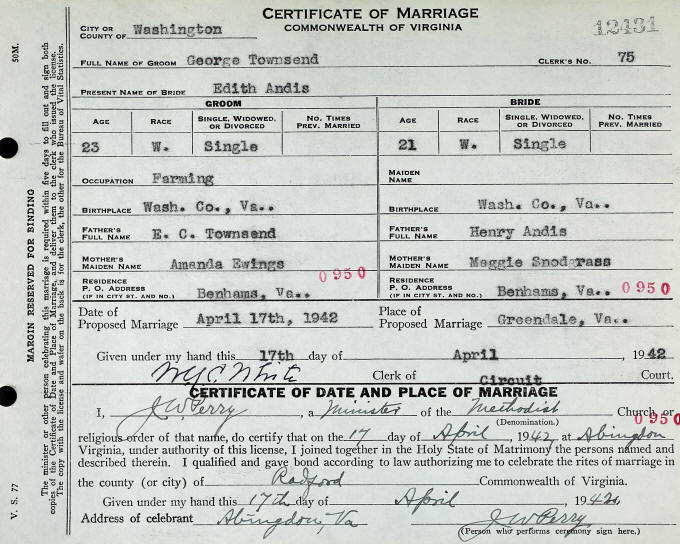 CERTIFICATE OF MARRIAGE
COMMONWEALTH OF VIRGINIA
12431
CITY OR COUNTY OF Washington
FULL NAME OF GROOM George Townsend CLERK'S NO. 75
PRESENT NAME OF BRIDE Edith Andis
GROOM BRIDE
AGE RACE SINGLE, WIDOWED, OR DIVORCED NO. TIMES PREV. MARRIED AGE RACE SINGLE, WIDOWED, OR DIVORCED NO. TIMES PREV. MARRIED
23 W. Single 21 W. Single
OCCUPATION Farming MAIDEN NAME
BIRTHPLACE Wash. Co., Va.. BIRTHPLACE Wash. Co., Va..
FATHER'S FULL NAME E. C. Townsend FATHER'S FULL NAME Henry Andis
MOTHER'S MAIDEN NAME Amanda Ewings MOTHER'S MAIDEN NAME Maggie Snodgrass
0950
RESIDENCE P. O. ADDRESS (IF IN CITY ST. AND NO.) Benhams, Va.. RESIDENCE P. O. ADDRESS (IF IN CITY ST. AND NO.) Benhams, Va.. 0950
Date of Proposed Marriage April 17th, 1942 Place of Proposed Marriage Greendale, Va..
Given under my hand this 17th day of April 1942
W.Y.C. White Clerk of Circuit Court.
CERTIFICATE OF DATE AND PLACE OF MARRIAGE
I, J.W. Perry, a Minister of the Methodist Church, or
(Denomination.) 0950
religious order of that name, do certify that on the 17 day of April, 1942, at Abingdon
Virginia, under authority of this license, I joined together in the Holy State of Matrimony the persons named and
described therein. I qualified and gave bond according to law authorizing me to celebrate the rites of marriage in
the county (or city) of Radford Commonwealth of Virginia.
Given under my hand this 17th day of April 1942
Address of celebrant Abingdon, Va J W Perry
(Person who performs ceremony sign here.)
50M.
V. S. 77
MARGIN RESERVED FOR BINDING
The minister or other person celebrating this marriage is required within five days to fill out and sign both
copies of the Certificate of Date and Place of Marriage, and deliver them to the clerk who issued the license.
The copy with the license and wafer on the back is for the clerk, the other for the Bureau of Vital Statistics.